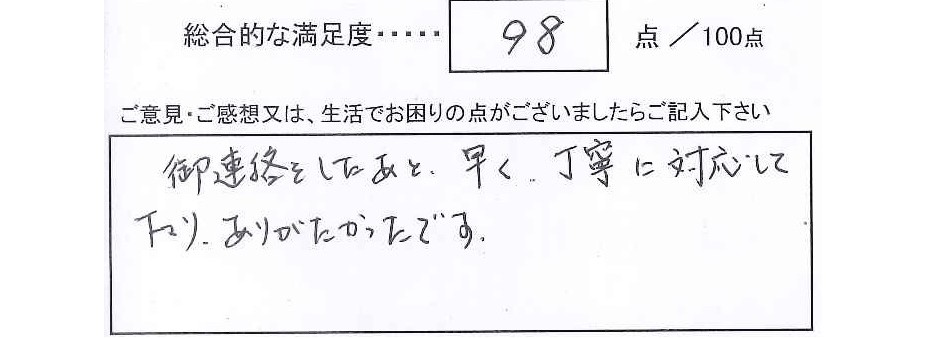 総合的な満足度・・・・・ 98 点 ／100点
ご意見・ご感想又は、生活でお困りの点がございましたらご記入下さい
御連絡をしたあと、早く、丁寧に対応して
下さり、ありがたかったです。